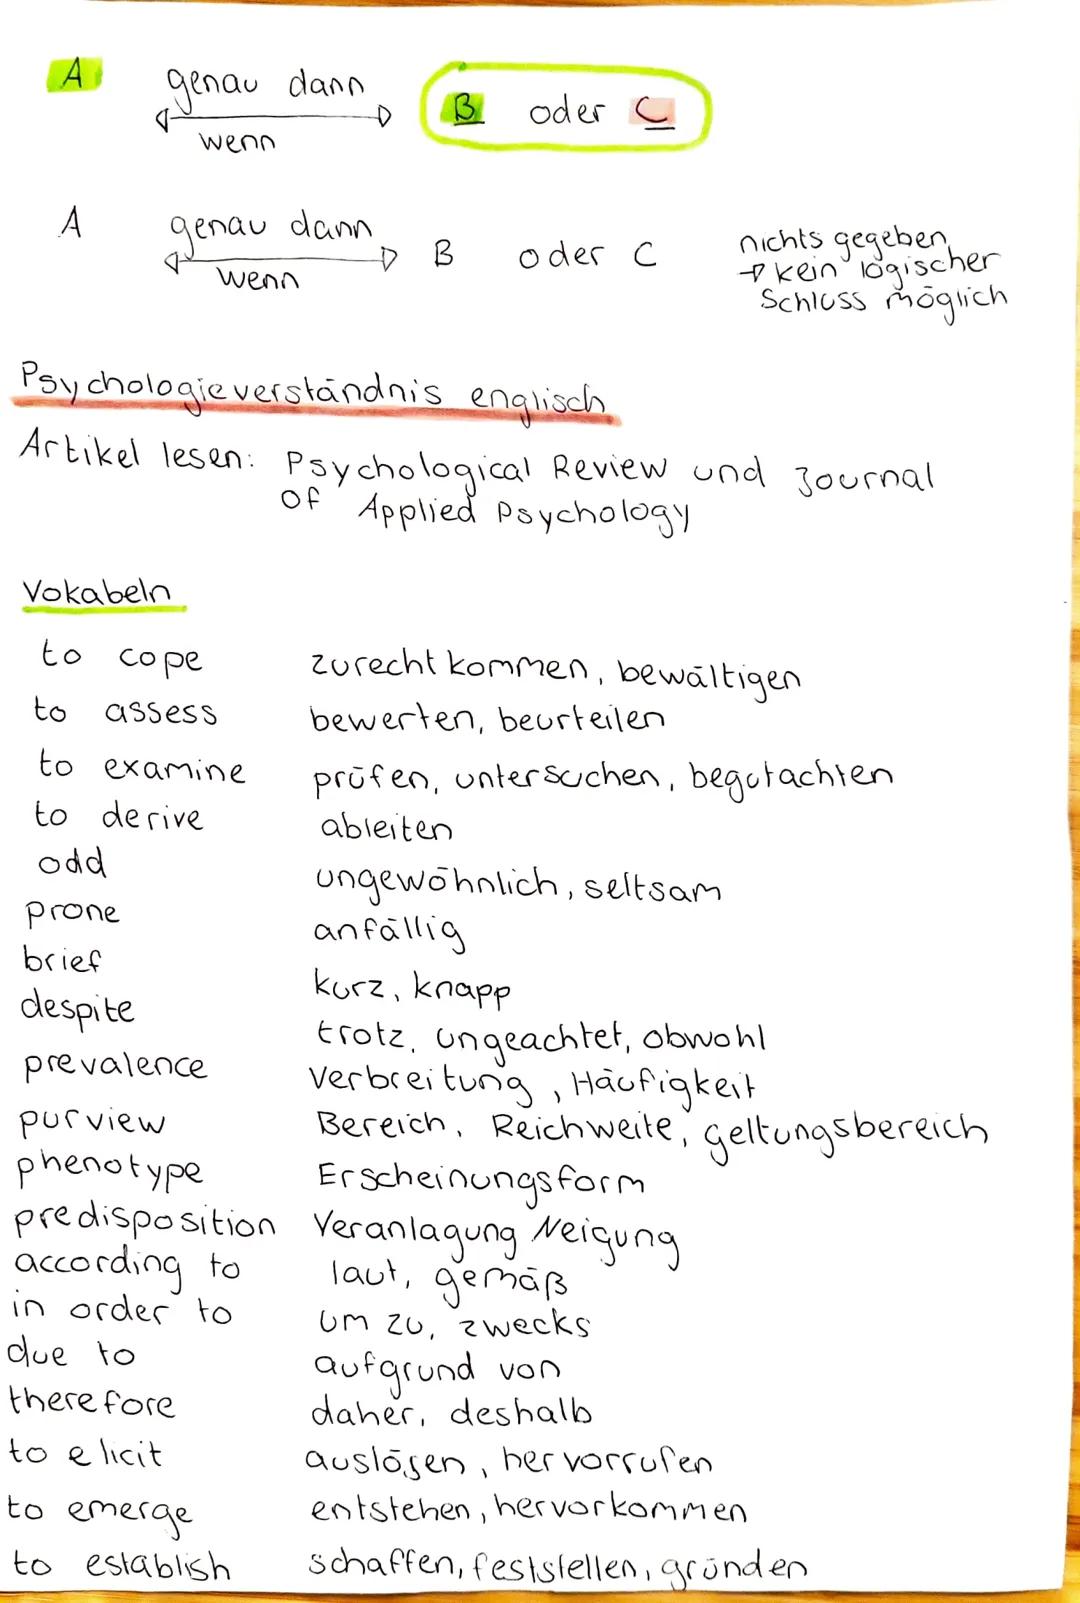 A genau dann wenn B oder C
A genau dann wenn B oder C nichts gegeben
→ kein logischer
Schluss möglich
Psychologieverständnis englisch
Artikel lesen: Psychological Review und Journal
of Applied Psychology
Vokabeln
to cope zurecht kommen, bewältigen
to assess bewerten, beurteilen
to examine prüfen, untersuchen, begutachten
to derive ableiten
odd ungewöhnlich, seltsam
prone anfällig
brief kurz, knapp
despite trotz, ungeachtet, obwohl
prevalence Verbreitung, Häufigkeit
purview Bereich, Reichweite, geltungsbereich
phenotype Erscheinungsform
predisposition Veranlagung Neigung
according to laut, gemäß
in order to um zu, zwecks
due to aufgrund von
therefore daher, deshalb
to elicit auslösen, hervorrufen
to emerge entstehen, hervorkommen
to establish schaffen, feststellen, gründen